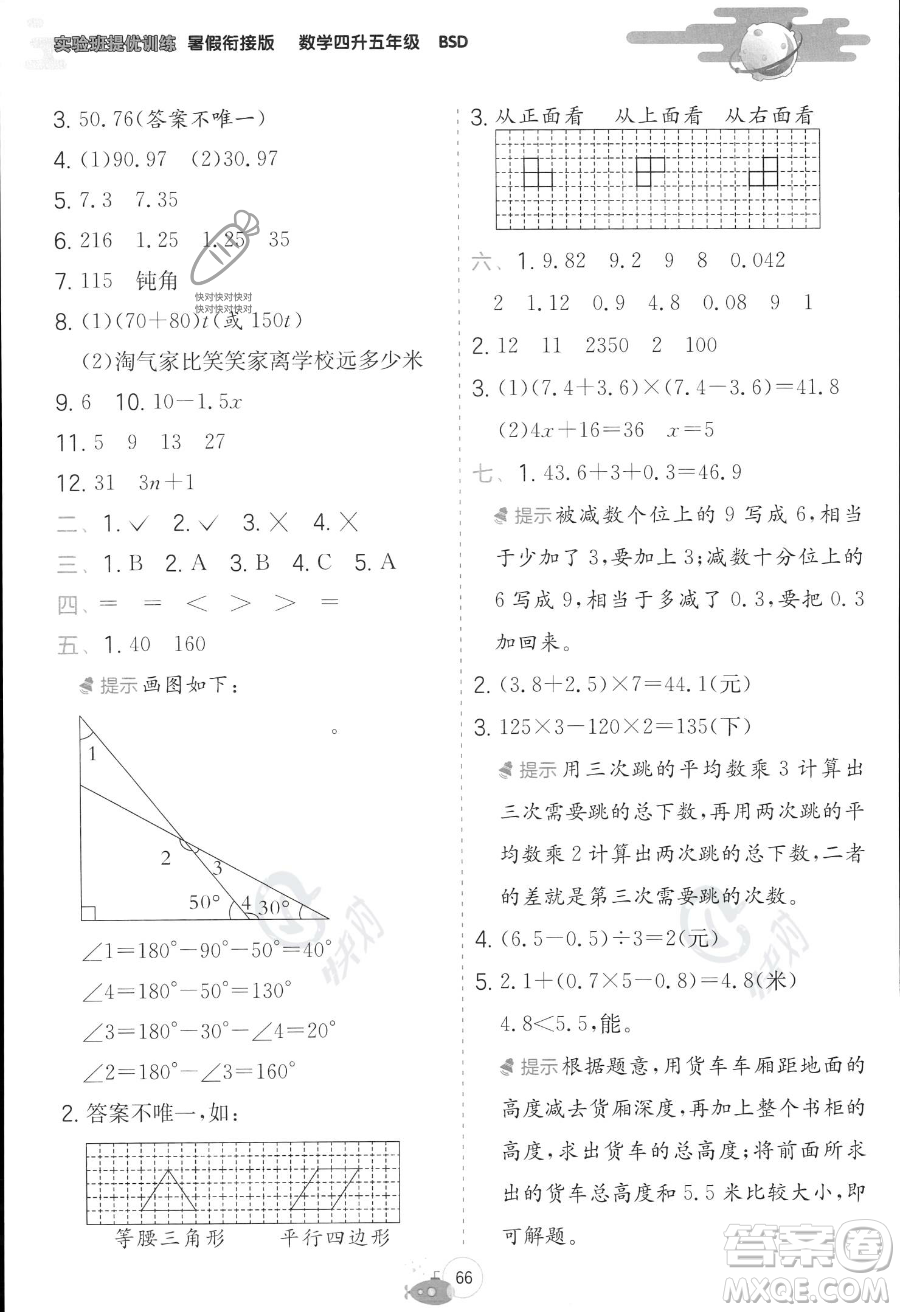 实验班提优训练 暑假衔接版 数学四升五年级 BSD
3. 50.76(答案不唯一)
4. (1)90.97 (2)30.97
5. 7.3 7.35
6. 216 1.25 1.25 35
7. 115 钝角
快对快对快对快对
快对快对快对快对
8. (1)(70+80)t(或 150t)
(2)淘气家比笑笑家离学校远多少米
9. 6 10. 10-1.5x
11. 5 9 13 27
12. 31 3n+1
二、1. ✓ 2. ✓ 3. ✗ 4. ✗
三、1. B 2. A 3. B 4. C 5. A
四、= = < > > =
五、1. 40 160
提示 画图如下:
1
2
3
50° 4 30°
∠1=180°-90°-50°=40°
∠4=180°-50°=130°
∠3=180°-30°-∠4=20°
∠2=180°-∠3=160°
2. 答案不唯一,如:
等腰三角形 平行四边形
3. 从正面看 从上面看 从右面看
六、1. 9.82 9.2 9 8 0.042
2 1.12 0.9 4.8 0.08 9 1
2. 12 11 2350 2 100
3. (1)(7.4+3.6)×(7.4-3.6)=41.8
(2)4x+16=36 x=5
七、1. 43.6+3+0.3=46.9
提示 被减数个位上的 9 写成 6,相当
于少加了 3,要加上 3;减数十分位上的
6 写成 9,相当于多减了 0.3,要把 0.3
加回来。
2. (3.8+2.5)×7=44.1(元)
3. 125×3-120×2=135(下)
提示 用三次跳的平均数乘 3 计算出
三次需要跳的总下数,再用两次跳的平
均数乘 2 计算出两次跳的总下数,二者
的差就是第三次需要跳的次数。
4. (6.5-0.5)÷3=2(元)
5. 2.1+(0.7×5-0.8)=4.8(米)
4.8<5.5,能。
提示 根据题意,用货车车厢距地面的
高度减去货厢深度,再加上整个书柜的
高度,求出货车的总高度;将前面所求
出的货车总高度和 5.5 米比较大小,即
可解题。
快对
快对
答案卷
MXQE.COM
66